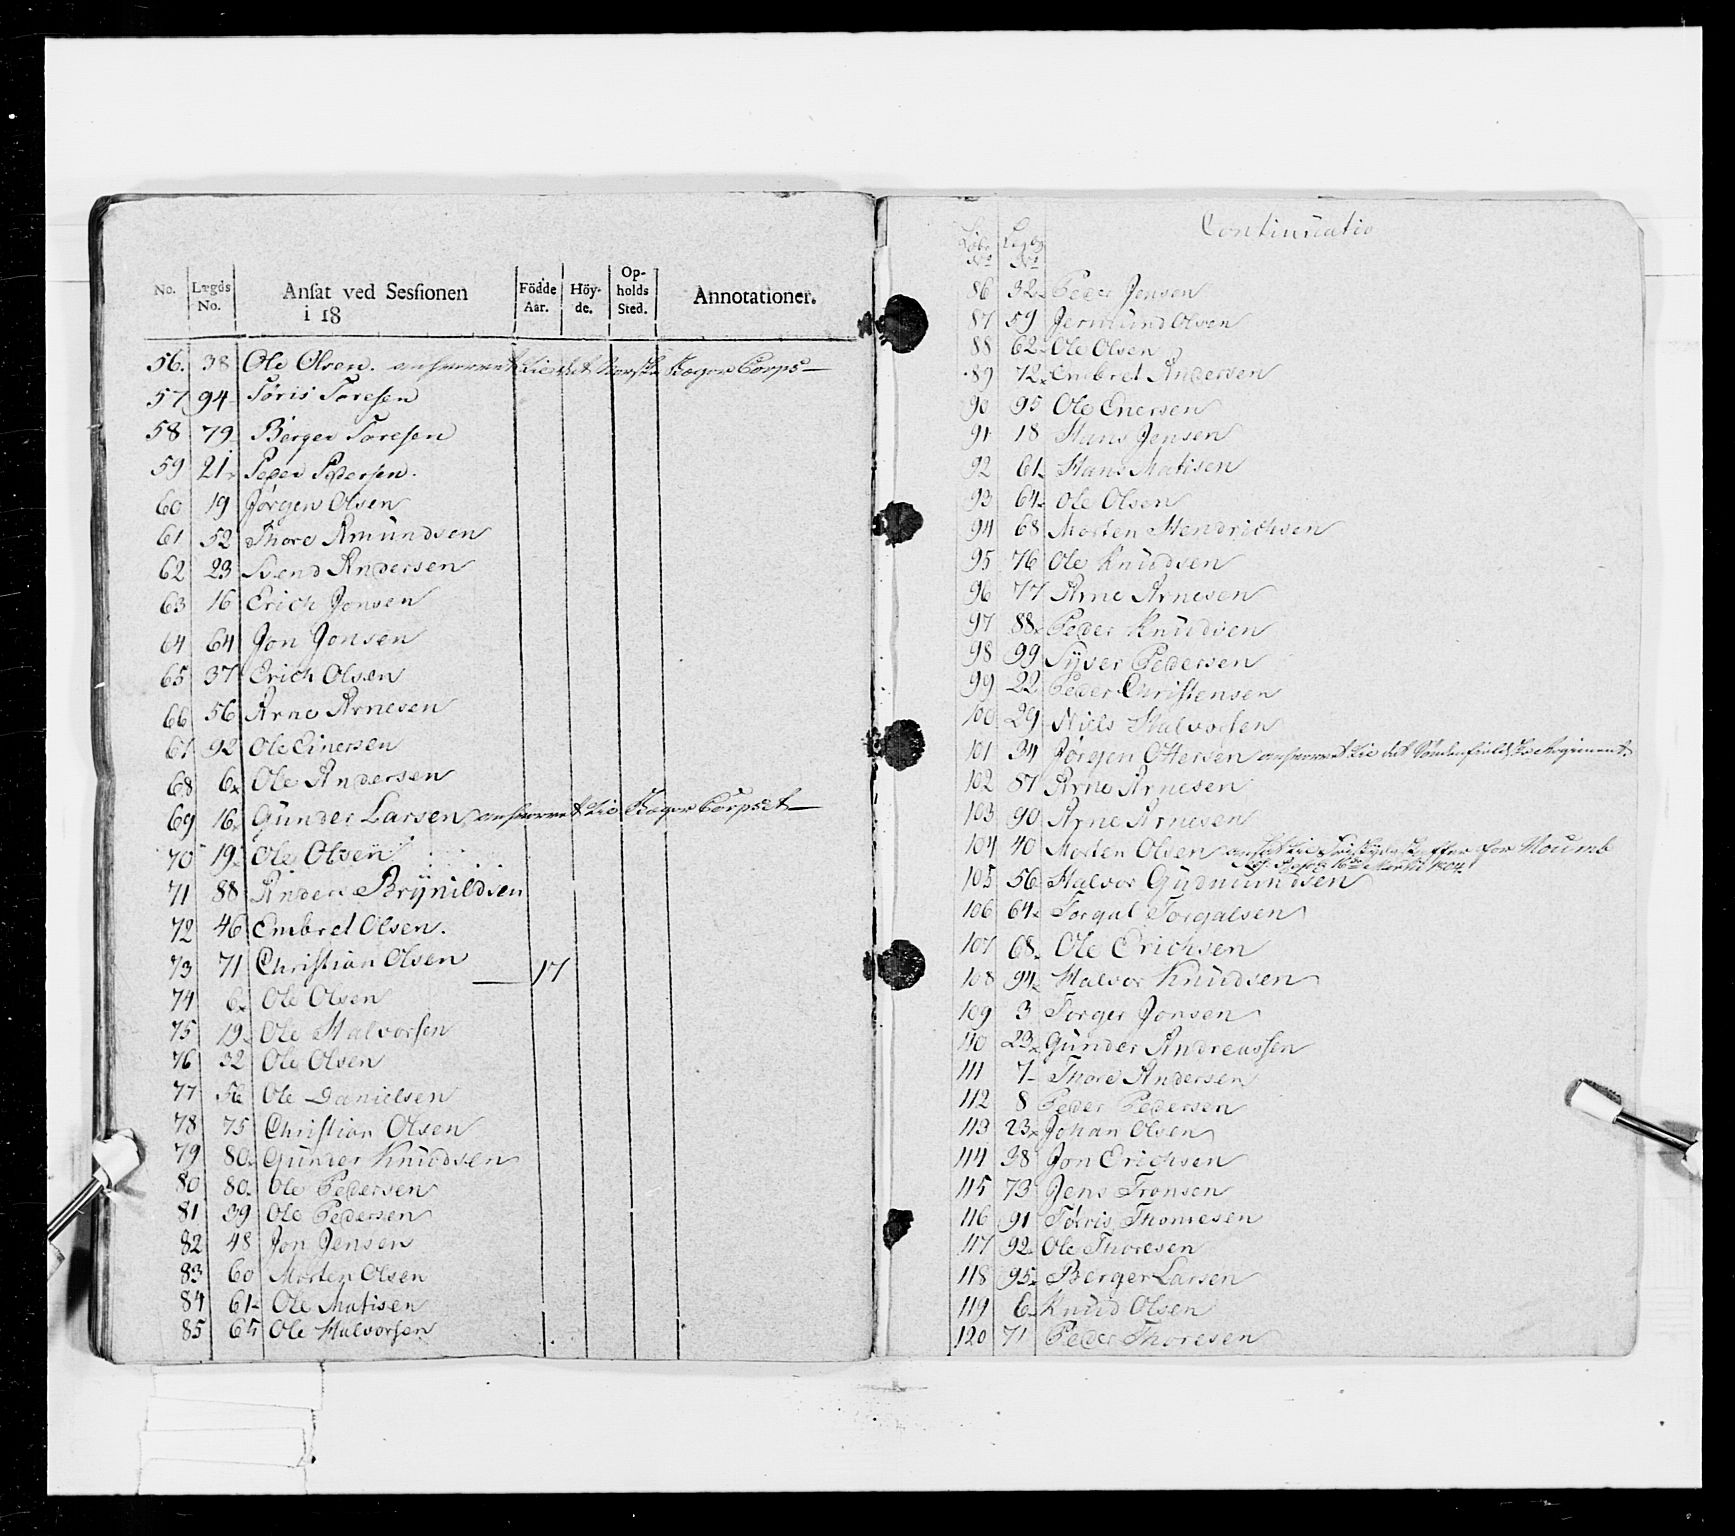 No. Lægds No. Ansat ved Sessionen i 18 Födde Aar. Höyde. Opholds Sted. Annotationer.
56. 38 Ole Olsen. Corps
57 94 Töris Toresen
58 79 Berger Toresen
59 21 Peder Pedersen.
60 19 Jørgen Olsen
61 52 Thore Amundsen
62 23 Svend Andersen
63 16 Erich Jonsen
64 64 Jon Jonsen
65 37 Erich Olsen
66 56 Arne Arnesen
67 92 Ole Einersen
68 6 Ole Andersen
69 16 Gunder Larsen Corpset
70 19 Ole Olsen
71 88 Anders Brÿnildsen
72 46 Embret Olsen.
73 71 Christian Olsen 17
74 6 Ole Olsen
75 19 Ole Halvorsen
76 32 Ole Olsen
77 56 Ole Danielsen
78 75 Christian Olsen
79 80 Gunder Knudsen
80 80 Ole Pedersen
81 39 Ole Pedersen
82 48 Jon Jensen
83 60 Morten Olsen
84 61 Ole Matisen
85 65 Ole Halvorsen
Continuatio
86 32 Peder Jensen
87 59 Jermund Olsen
88 62 Ole Olsen
89 72 Embret Andersen
90 95 Ole Enersen
91 18 Hans Jensen
92 61 Hans Matisen
93 64 Ole Olsen
94 68 Morten Hendrichsen
95 76 Ole Knudsen
96 77 Arne Arnesen
97 88 Peder Knudsen
98 99 Syver Pedersen
99 22 Peder Christensen
100 29 Niels Halvorsen
101 34 Jörgen Ottersen det Regiment
102 87 Arne Arnesen
103 90 Arne Arnesen
104 40 Morten Olsen for
1804
105 56 Halvor Gudmundsen
106 64 Torgal Torgalsen
107 68 Ole Erichsen
108 94 Halvor Knudsen
109 3 Torger Jonsen
110 23 Gunder Andreassen
111 7 Thore Andersen
112 8 Peder Pedersen
113 23 Johan Olsen
114 38 Jon Erichsen
115 73 Jens Tronsen
116 91 Torris Thomesen
117 92 Ole Thoresen
118 95 Berger Larsen
119 6 Knud Olsen
120 71 Peder Thoresen